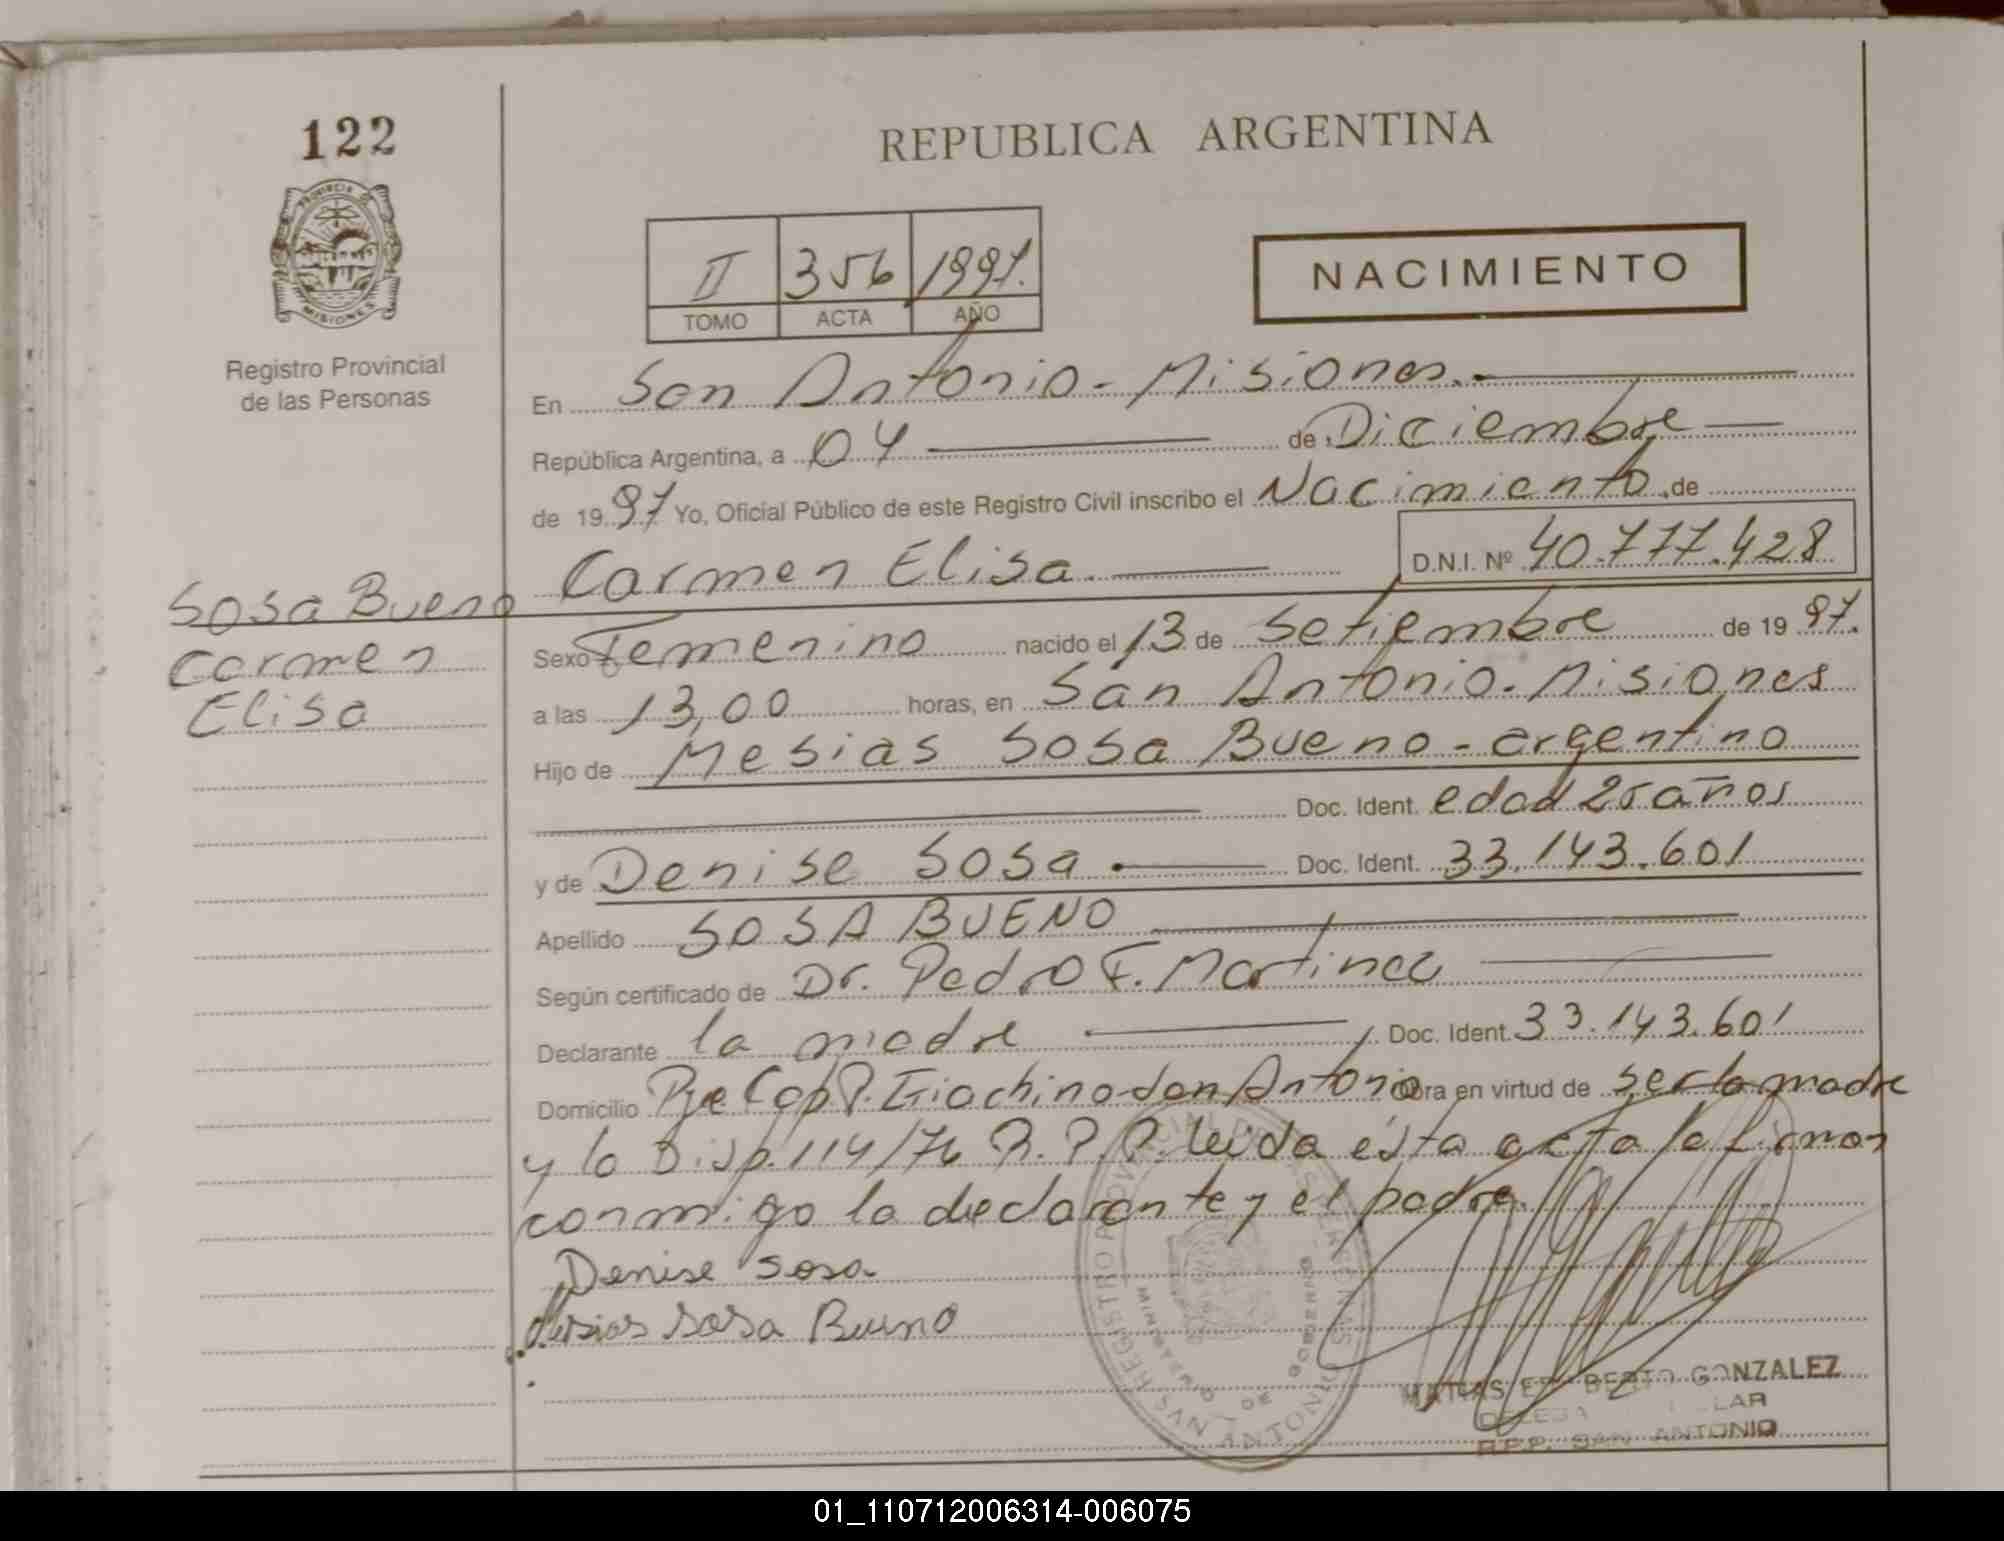 122
REPUBLICA ARGENTINA
PROVINCIA DE
MISIONES
Registro Provincial
de las Personas
II 356 1997.
TOMO ACTA AÑO
NACIMIENTO
En San Antonio - Misiones.
República Argentina, a 04 de Diciembre
de 1997 Yo, Oficial Público de este Registro Civil inscribo el Nacimiento de
Carmen Elisa. D.N.I. Nº 40.777.428
Sosa Bueno
Carmen
Elisa
Sexo Femenino nacido el 13 de Setiembre de 1997.
a las 13,00 horas, en San Antonio - Misiones
Hijo de Mesias Sosa Bueno - argentino
Doc. Ident. edad 25 años
y de Denise Sosa. Doc. Ident. 33.143.601
Apellido SOSA BUENO
Según certificado de Dr. Pedro F. Martinez
Declarante la madre Doc. Ident. 33.143.601
Domicilio Pje Cap P. Giachino - San Antonio Obra en virtud de ser la madre
y la Disp. 114/76 R.P.P. leida ésta acta la firman
conmigo la declarante y el padre.
Denise Sosa
Mesias Sosa Bueno
REGISTRO PROVINCIAL DE LAS PERSONAS
MINISTERIO DE GOBIERNO
SAN ANTONIO
MATIAS GONZALEZ
R.P.P. SAN ANTONIO
01_110712006314-006075